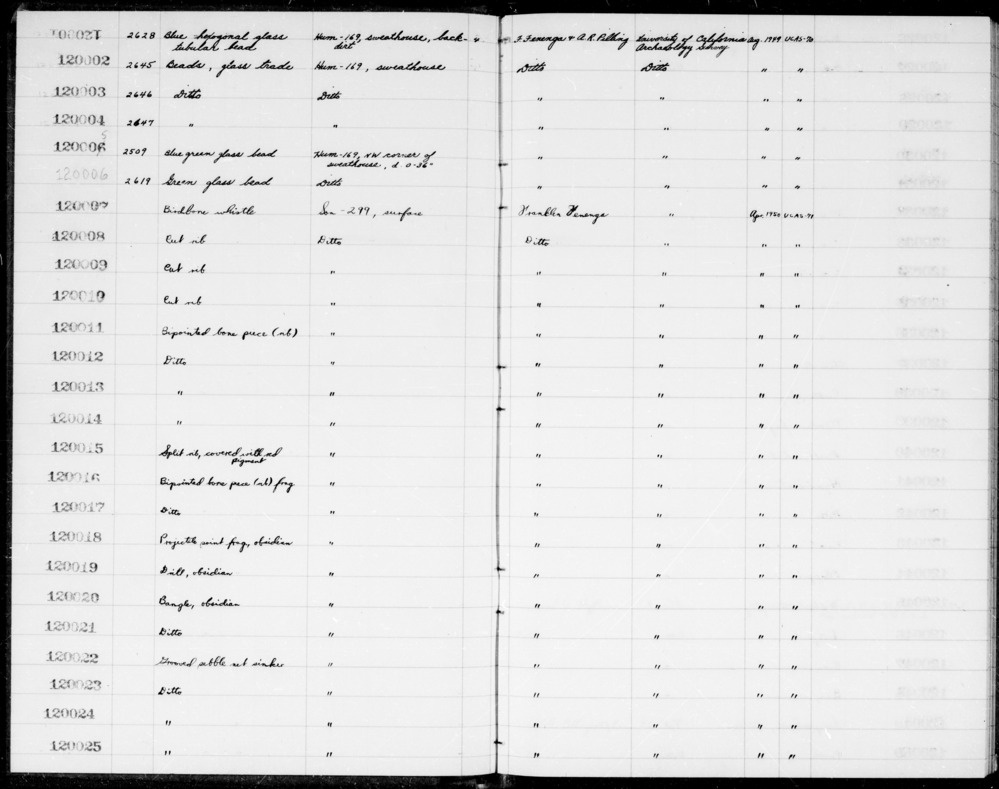 120021 2628 Blue hexogonal glass tubular bead Hum-169, sweathouse, back-dirt " F. Fenenga & A.R. Pilling University of California Archaeology Survey Ag. 1949 UCAS-70
120002 2645 Beads, glass trade Hum-169, sweathouse Ditto Ditto " "
120003 2646 Ditto Ditto " " " "
120004 2647 " " " " " "
120006 5 2509 Blue green glass bead Hum-169, NW corner of sweathouse, d 0-36" " " " "
120006 2619 Green glass bead Ditto " " " "
120007 Birdbone whistle Son-299, surface Franklin Fenenga " Apr. 1950 UCAS-71
120008 Cut rib Ditto Ditto " " "
120009 Cut rib " " " " "
120010 Cut rib " " " " "
120011 Bipointed bone piece (rib) " " " " "
120012 Ditto " " " " "
120013 " " " " " "
120014 " " " " " "
120015 Split rib, covered with red pigment " " " " "
120016 Bipointed bone piece (rib) frag " " " " "
120017 Ditto " " " " "
120018 Projectile point frag, obsidian " " " " "
120019 Drill, obsidian " " " " "
120020 Bangle, obsidian " " " " "
120021 Ditto " " " " "
120022 Grooved pebble net sinker " " " " "
120023 Ditto " " " " "
120024 " " " " " "
120025 " " " " " "